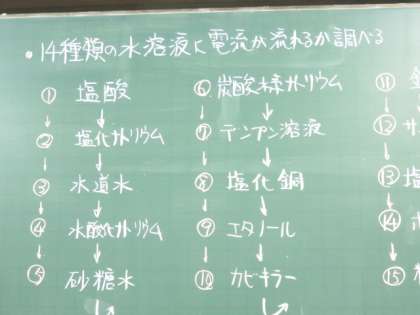 ・14種類の水溶液に電流が流れるか調べる
① 塩酸
② 塩化ナトリウム
③ 水道水
④ 水酸化ナトリウム
⑤ 砂糖水
⑥ 炭酸水素ナトリウム
⑦ デンプン溶液
⑧ 塩化銅
⑨ エタノール
⑩ カビキラー
⑪
⑫
⑬ 塩
⑭
⑮